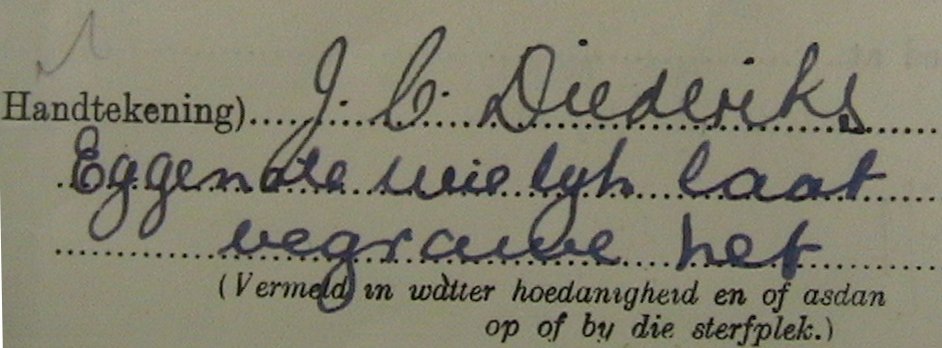 Handtekening) J. C. Diederiks
Eggenote wie lyk laat
vegrawe het
(Vermeld in watter hoedanigheid en of asdan
op of by die sterfplek.)